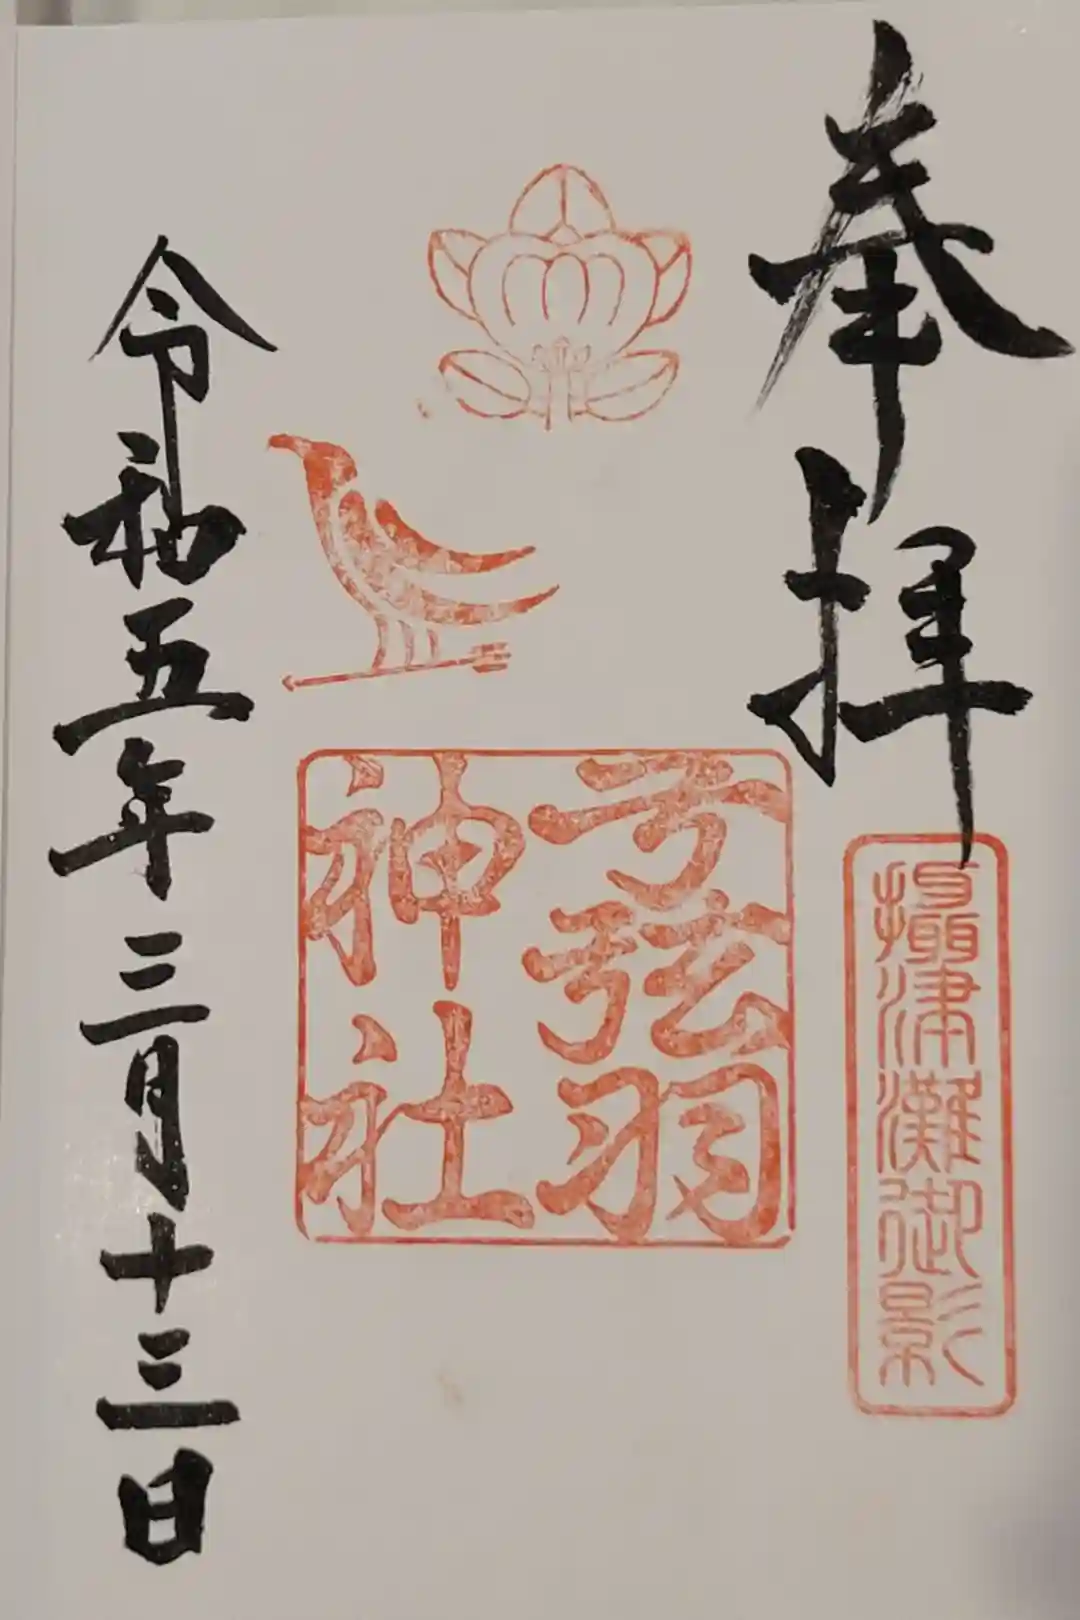 奉拝
攝津灘御影
弓弦羽
神社
令和五年三月十三日